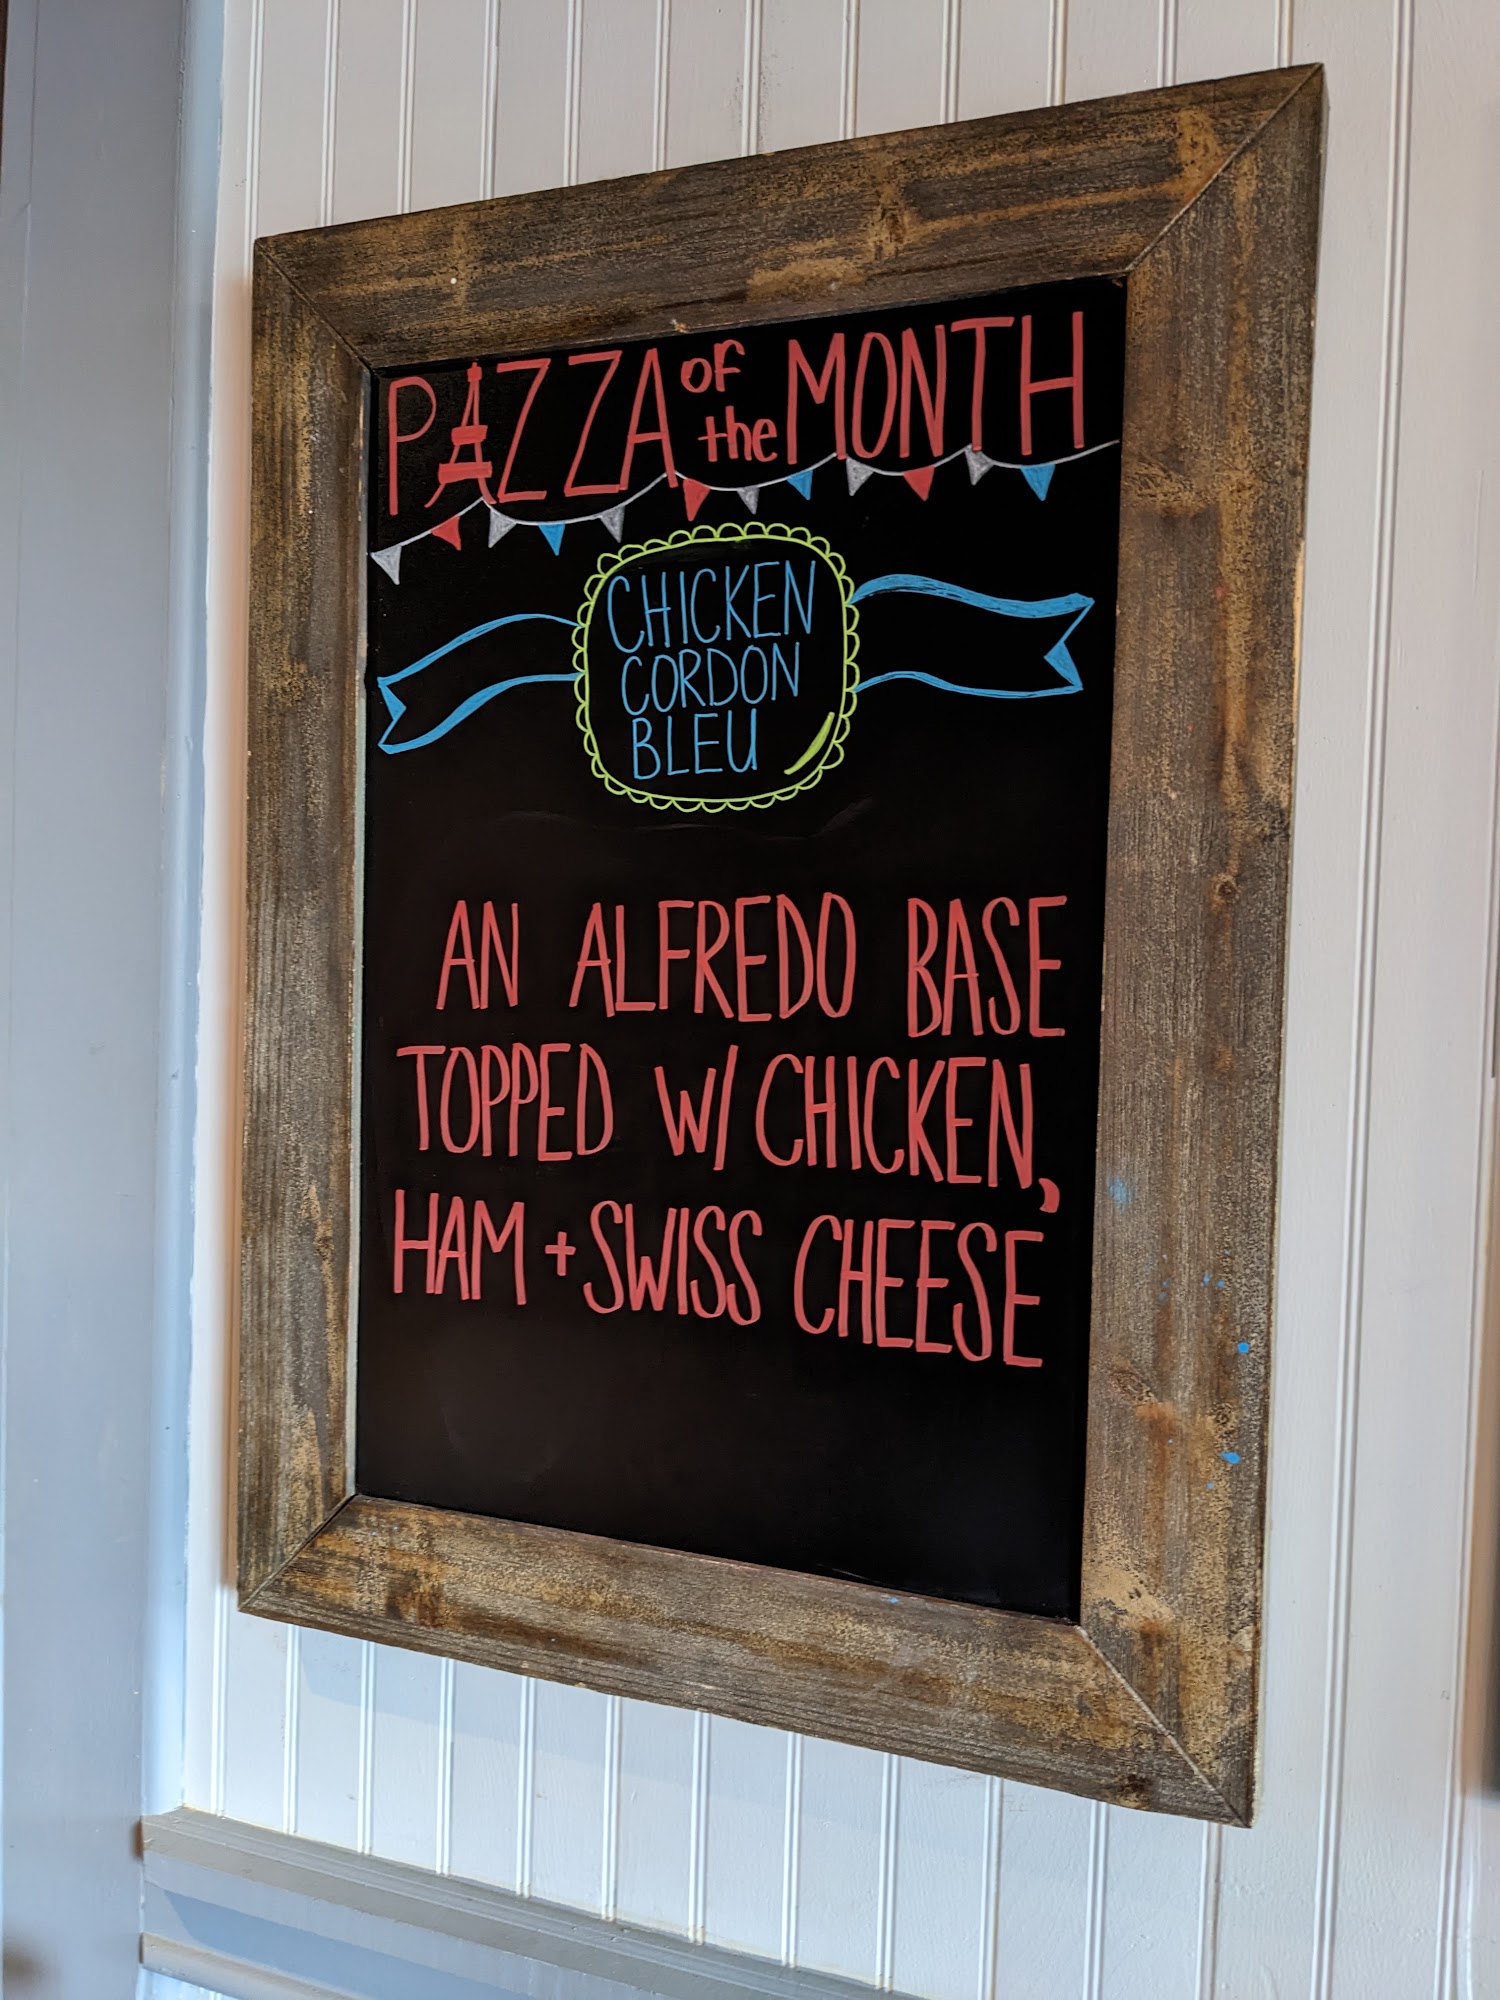 PIZZA of the MONTH
CHICKEN
CORDON
BLEU
AN ALFREDO BASE
TOPPED W/ CHICKEN,
HAM + SWISS CHEESE